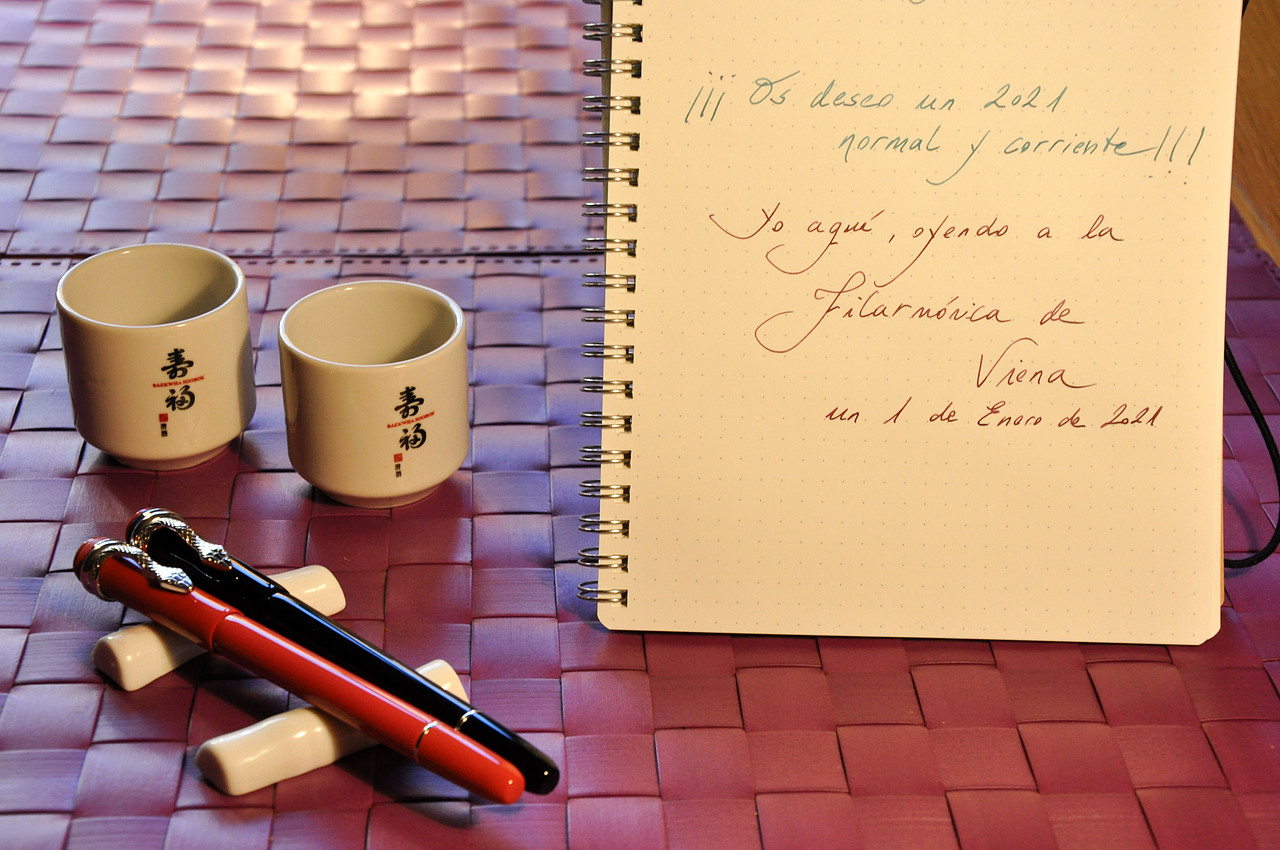 ¡¡¡ Os deseo un 2021
normal y corriente!!!
Yo aquí, oyendo a la
Filarmónica de
Viena
un 1 de Enero de 2021
壽
BAEKWHA SOOBOK
福
淸酒
壽
BAEKWHA SOOBOK
福
淸酒